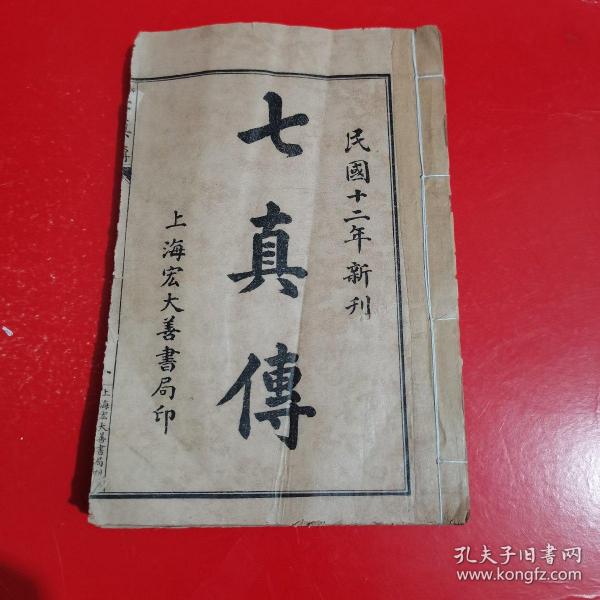 民國十二年新刊
七真傳
上海宏大善書局印
真傳
上海宏大善書局印
孔夫子旧书网
www.kongfz.com